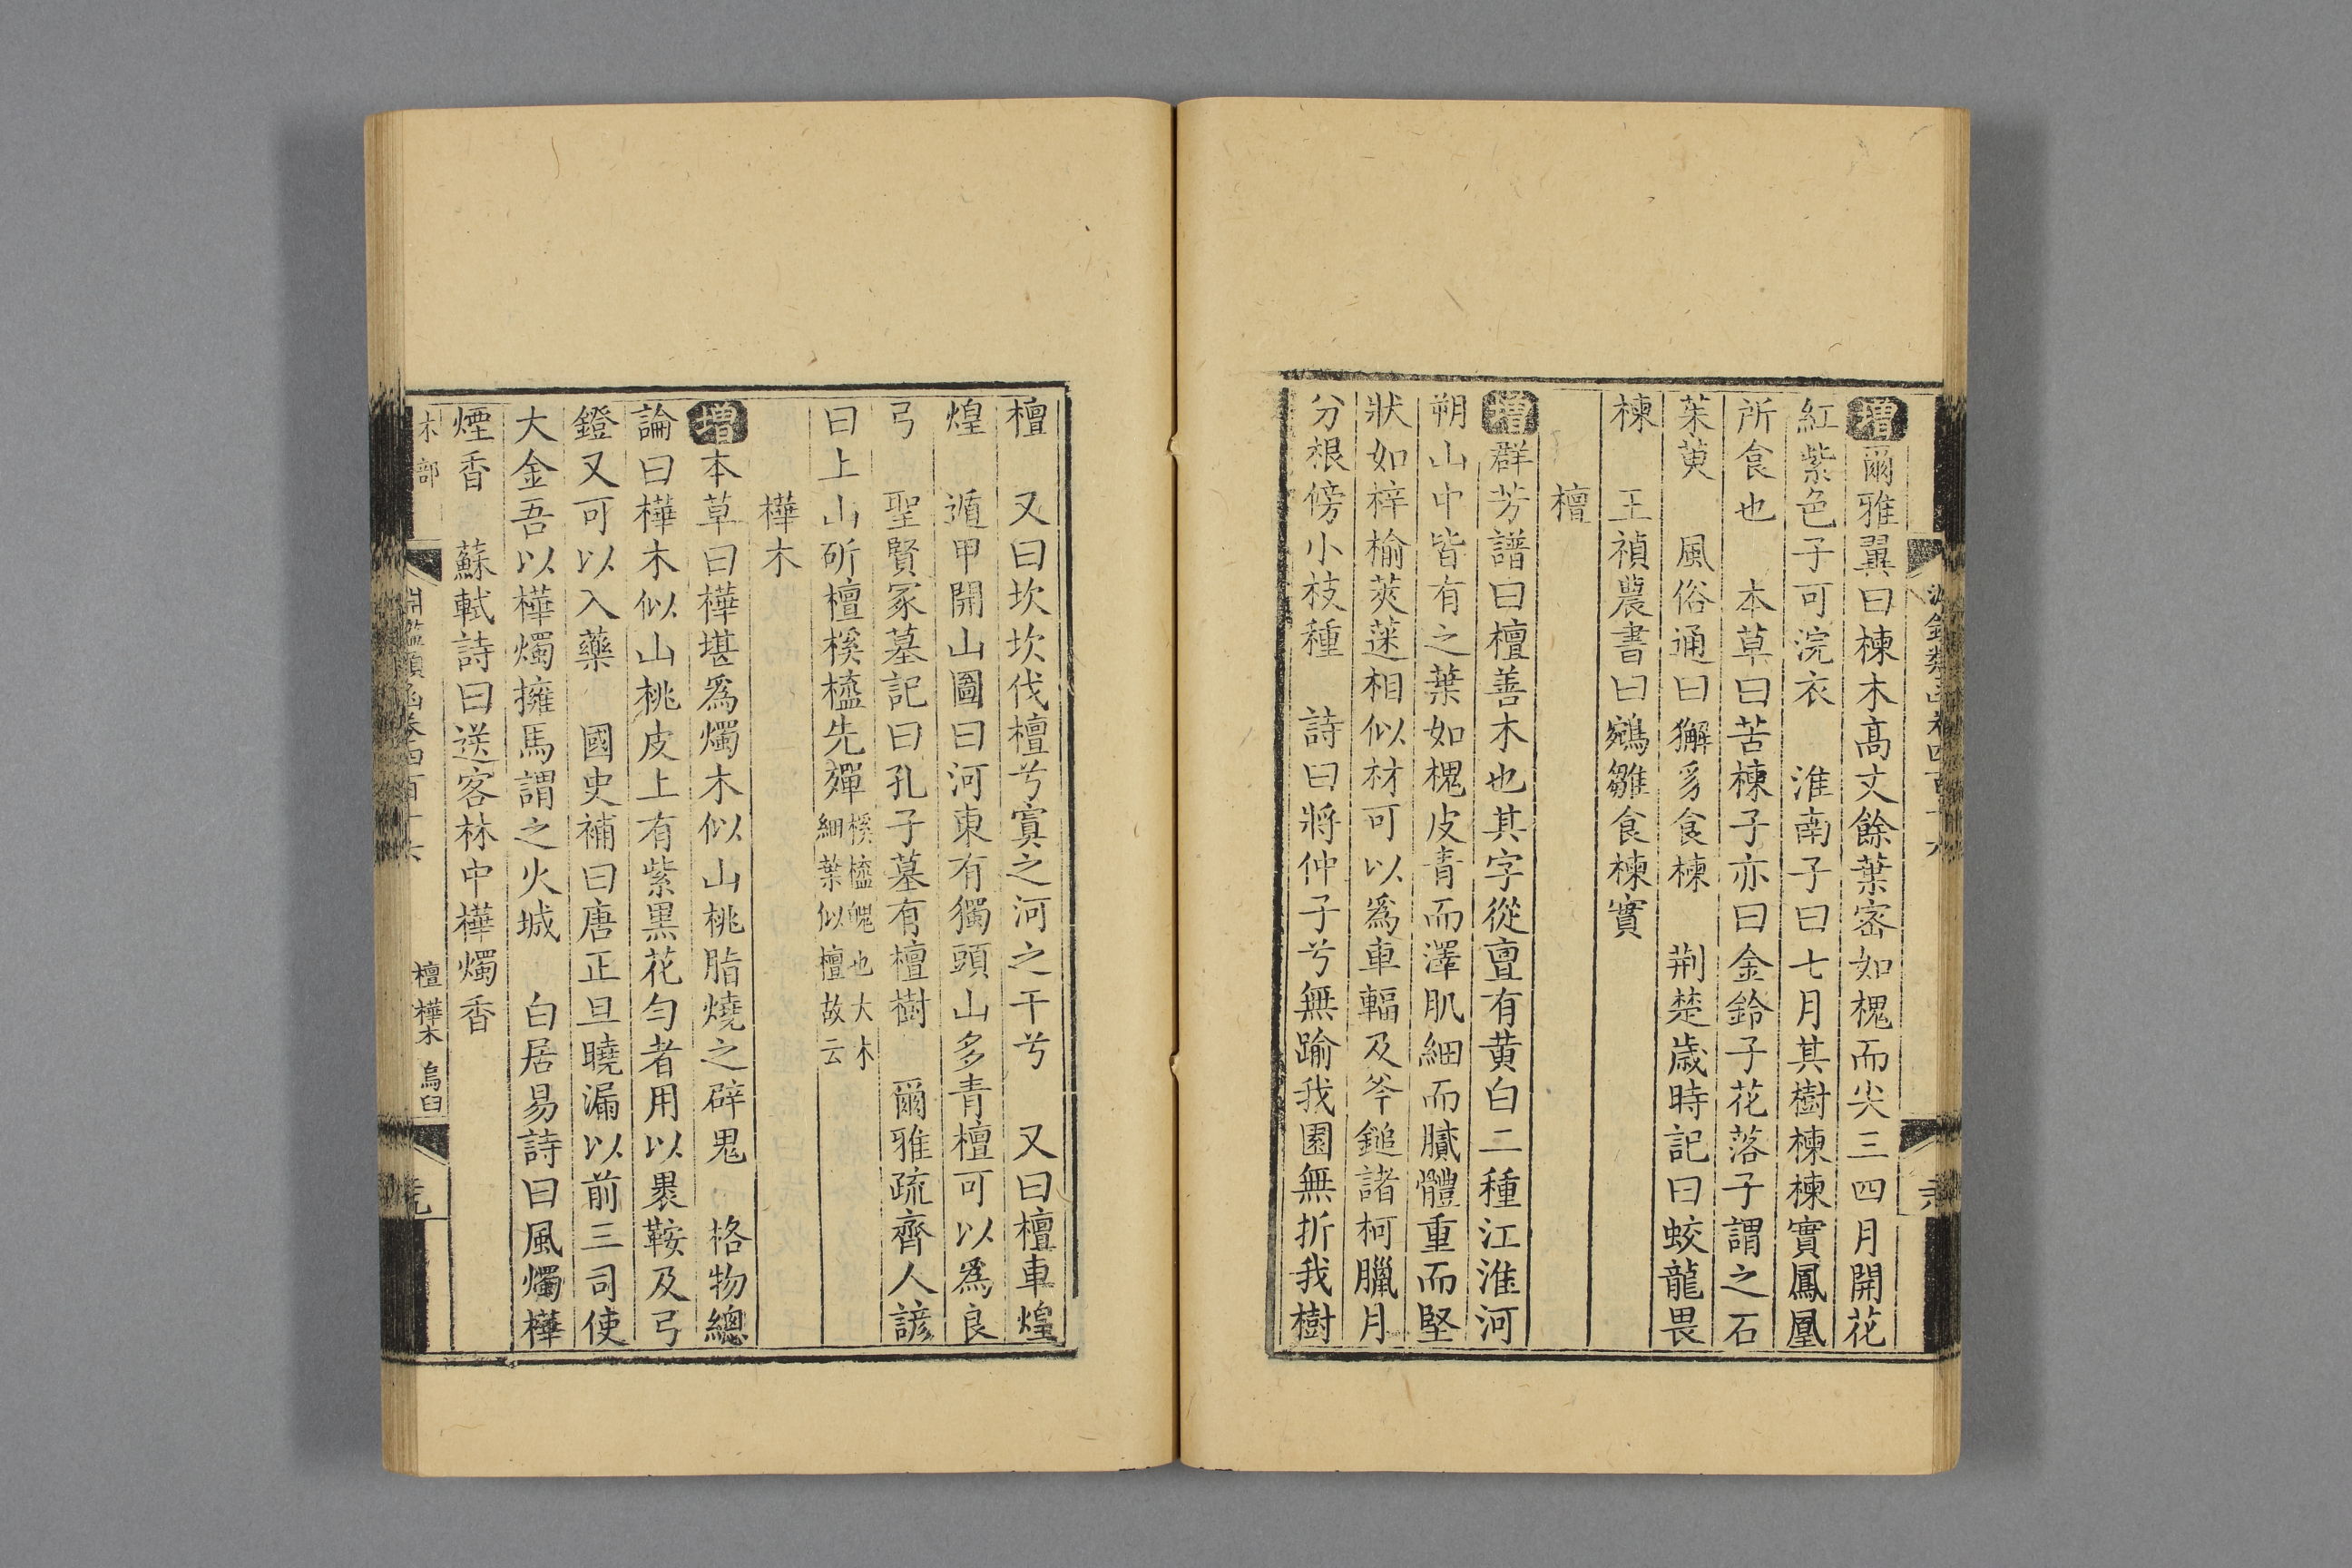 增爾雅翼曰楝木高丈餘葉密如槐而尖三四月開花
紅紫色子可浣衣　淮南子曰七月其樹楝楝實鳳凰
所食也　本草曰苦楝子亦曰金鈴子花落子謂之石
茱萸　風俗通曰獬豸食楝　荆楚歲時記曰蛟龍畏
楝　王禎農書曰鵷雛食楝實
檀
增群芳譜曰檀善木也其字從亶有黄白二種江淮河
朔山中皆有之葉如槐皮青而澤肌細而膩體重而堅
狀如梓榆莢蒾相似材可以爲車輻及斧鎚諸柯臘月
分根傍小枝種　詩曰將仲子兮無踰我園無折我樹
檀　又曰坎坎伐檀兮寘之河之干兮　又曰檀車煌
煌　遁甲開山圖曰河東有獨頭山多青檀可以爲良
弓　聖賢冢墓記曰孔子墓有檀樹　爾雅疏齊人諺
曰上山斫檀榽橀先殫榽橀魄也大木細葉似檀故云
樺木
增本草曰樺堪爲燭木似山桃脂燒之辟鬼　格物總
論曰樺木似山桃皮上有紫黑花勻者用以裹鞍及弓
鐙又可以入藥　國史補曰唐正旦曉漏以前三司使
大金吾以樺燭擁馬謂之火城　白居易詩曰風燭樺
煙香　蘇軾詩曰送客林中樺燭香
木部　淵鑑類函卷四百十六　檀 樺木 烏臼